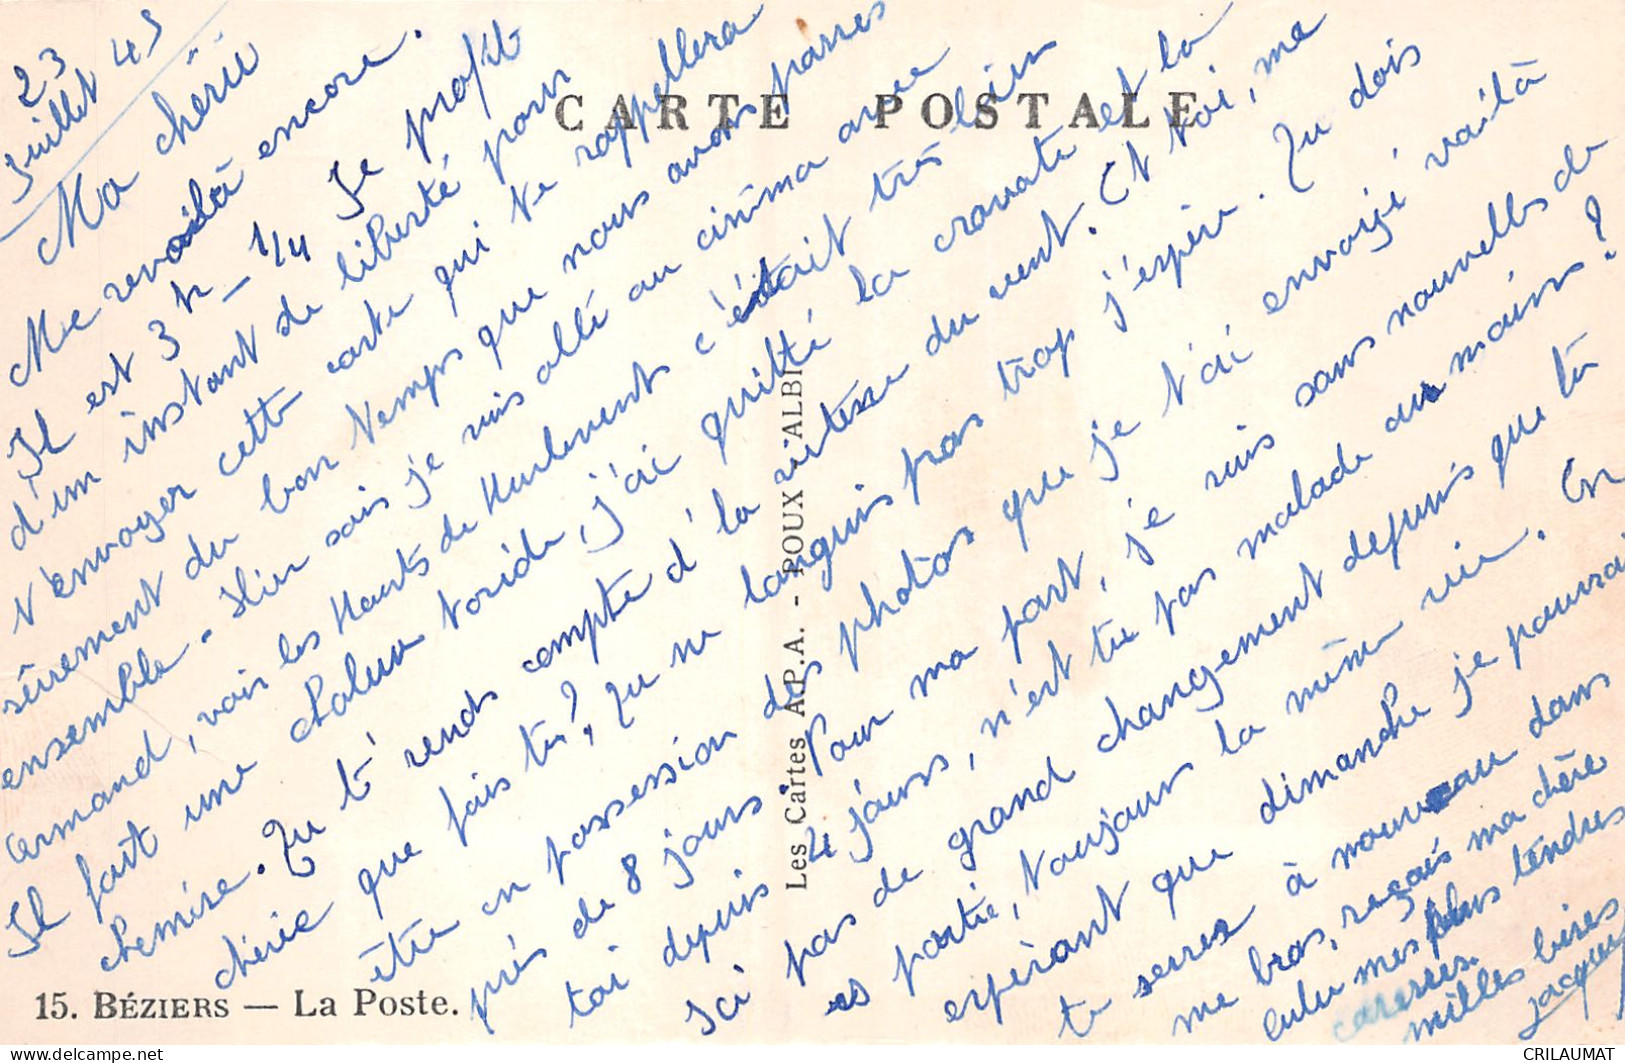 23
Juillet 45
Ma chérie
Me revoilà encore.
Il est 3 h - 1/4 Je profite
d'un instant de liberté pour
t'envoyer cette carte qui te rappellera
sûrement du bon temps que nous avons passés
ensemble. Hier soir je suis allé au cinéma avec
Armand, voir les Hauts de Hurlevent c'était très bien
Il fait une chaleur torride, j'ai quitté la cravate et la
chemise. Tu te rends compte d' la vitesse du vent. Et toi, ma
chérie que fais tu? Tu ne languis pas trop j'espère. Tu dois
être en possession des photos que je t'ai envoyé voilà
près de 8 jours. Pour ma part, je suis sans nouvelles de
toi depuis 4 jours, n'est tu pas malade au moins?
Ici pas de grand changement depuis que tu
es partie, toujours la même vie. En
espérant que dimanche je pourrai
te serrer à nouveau dans
me bras, reçois ma chère
Lulu mes plus tendres
caresses.
milles bises
Jacques
CARTE POSTALE
Les Cartes A.P.A. - POUX ALBI
15. BÉZIERS — La Poste.
delcampe.net
CRILAUMAT